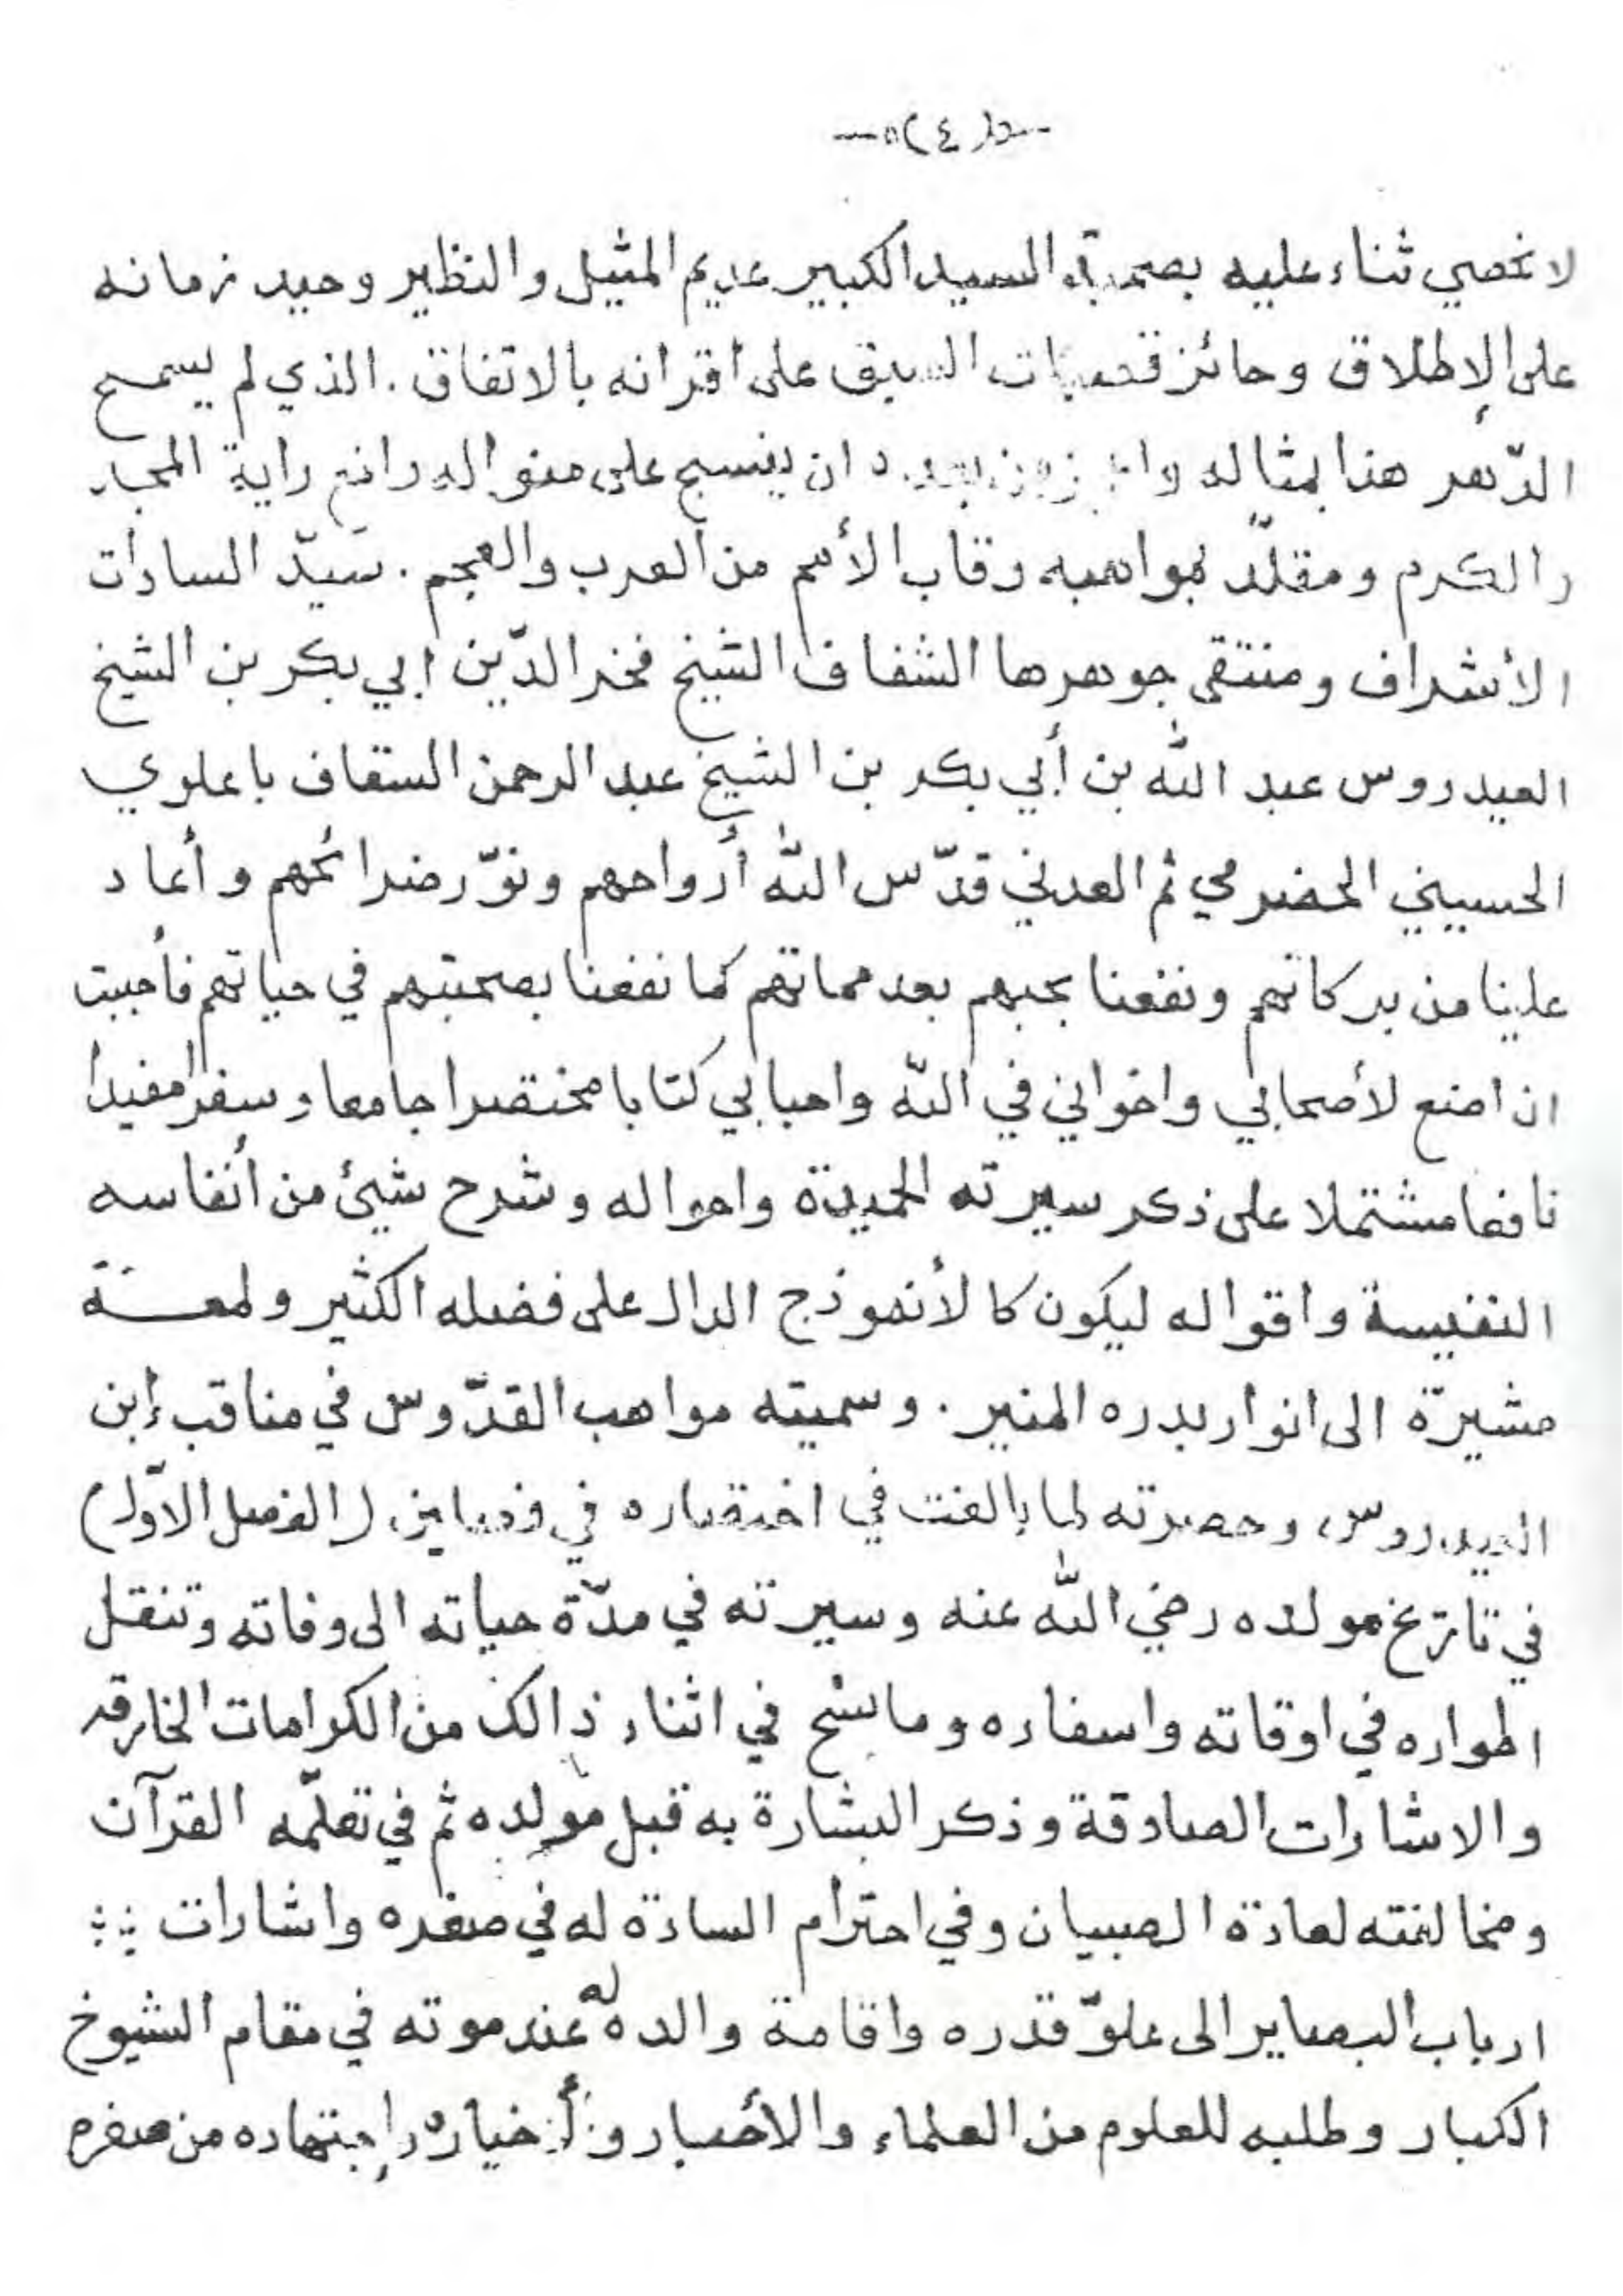 (٤)
لا نحصي ثناء عليه بصحبة السيد الكبير عديم المثيل والنظير وحيد زمانه
على الإطلاق وحائز قصبات السبق على اقرانه بالاتفاق . الذي لم يسمح
الدّهر هذا بمثاله ان ينسج على منواله رافع راية المجد
والكرم ومقلّد بمواهبه رقاب الأمم من العرب والعجم . سيّد السادات
الأشراف ومنتقى جوهرها الشفاف الشيخ فخر الدّين ابي بكر بن الشيخ
العيدروس عبد الله بن أبي بكر بن الشيخ عبد الرحمن السقاف باعلوي
الحسيني الحضرمي ثم العدني قدّس الله أرواحهم ونوّر ضرائحهم وأعاد
علينا من بركاتهم ونفعنا بحبهم بعد مماتهم كما نفعنا بصحبتهم في حياتهم فأحببت
ان اضع لأصحابي واخواني في الله واحبابي كتابا مختصرا جامعا وسفرا مفيدا
نافعا مشتملا على ذكر سيرته الحميدة واحواله وشرح شيئ من أنفاسه
النفيسة واقواله ليكون كالأنموذج الدال على فضله الكثير ولمعـــة
مشيرة الى انوار بدره المنير . وسميته مواهب القدّوس في مناقب إبن
العيدروس وحصرته لما بالغت في اختصاره في فصلين (الفصل الاوّل)
في تاريخ مولده رضي الله عنه وسيرته في مدّة حياته الى وفاته وتنقل
اطواره في اوقاته واسفاره وما سنح في اثناء ذالك من الكرامات الخارقه
والاشارات الصادقة وذكر البشارة به قبل مولده ثم في تعلّمه القرآن
ومخالفته لعادة الصبيان وفي احترام السادة له في صغره واشارات
ارباب البصاير الى علوّ قدره واقامة والده له عند موته في مقام الشيوخ
الكبار وطلبه للعلوم من العلماء والأحبار وإجتهاده من صغره